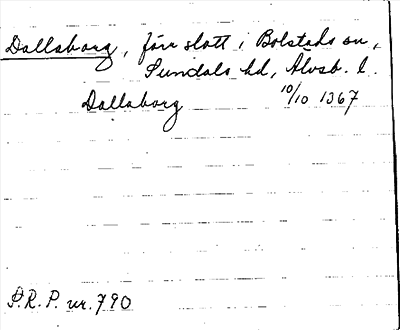 Dallaborg, förr slott i Bolstads sn,
Sundals hd, Älvsb. l.
Dallaborg 10/10 1367
S.R.P. nr. 790